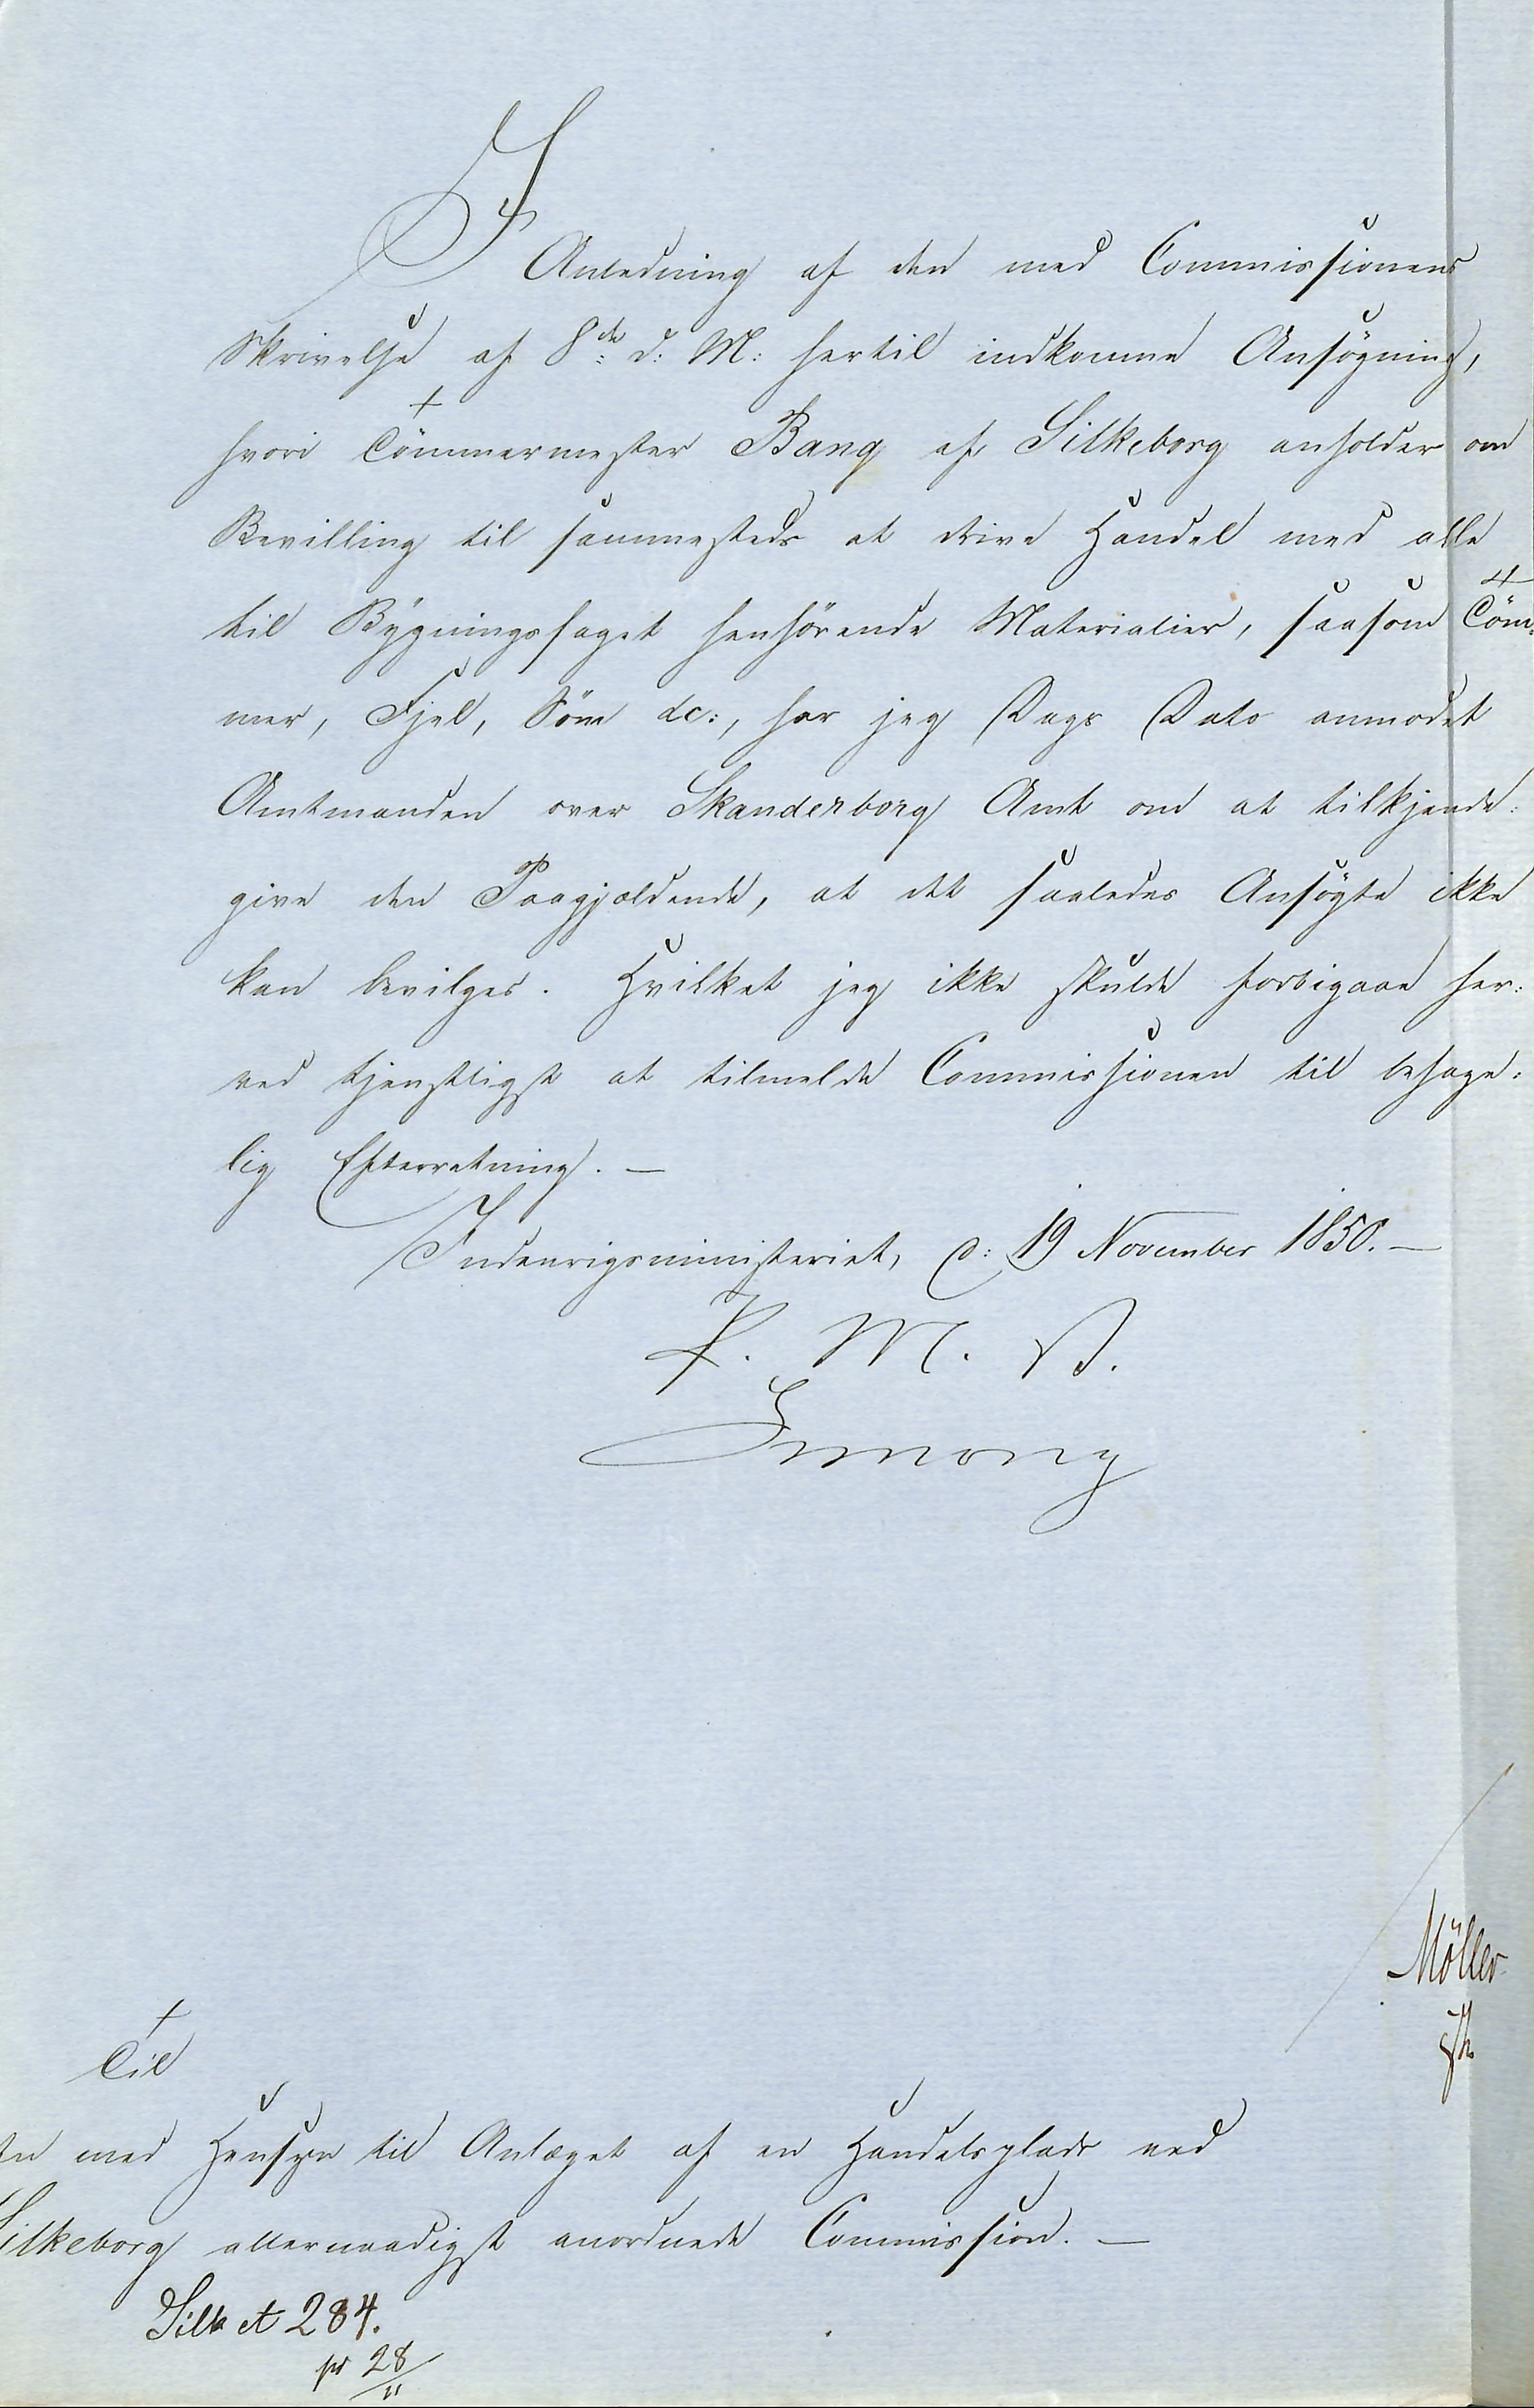 I
Anledning af den med Commissionens
Skrivelse af 8de d: M: hertil indkomne Ansøgning,
hvori Tömmermester Bang af Silkeborg anholder om
Bevilling til sammesteds at drive Handel med alle
til Bygningsfaget henhörende Materialier, saasom Töm:
mer, Fjel, Söm &c:, har jeg Dags Dato anmodet
Amtmanden over Skanderborg Amt om at tilkjende:
give den Paagjældende, at det saaledes Ansögte ikke
kan bevilges. Hvilket jeg ikke skulde forbigaae her:
ved tjenstligst at tilmelde Commissionen til behage:
lig Efterretning. —
Indenrigsministeriet, d: 19 November 1850. —
F. M. V.
Simony
Möller
Til
den med Hensyn til Anlæget af en Handelsplads ved
Silkeborg allernaadigst anordnede Commission. —
Silk et 284.
pr 28/11